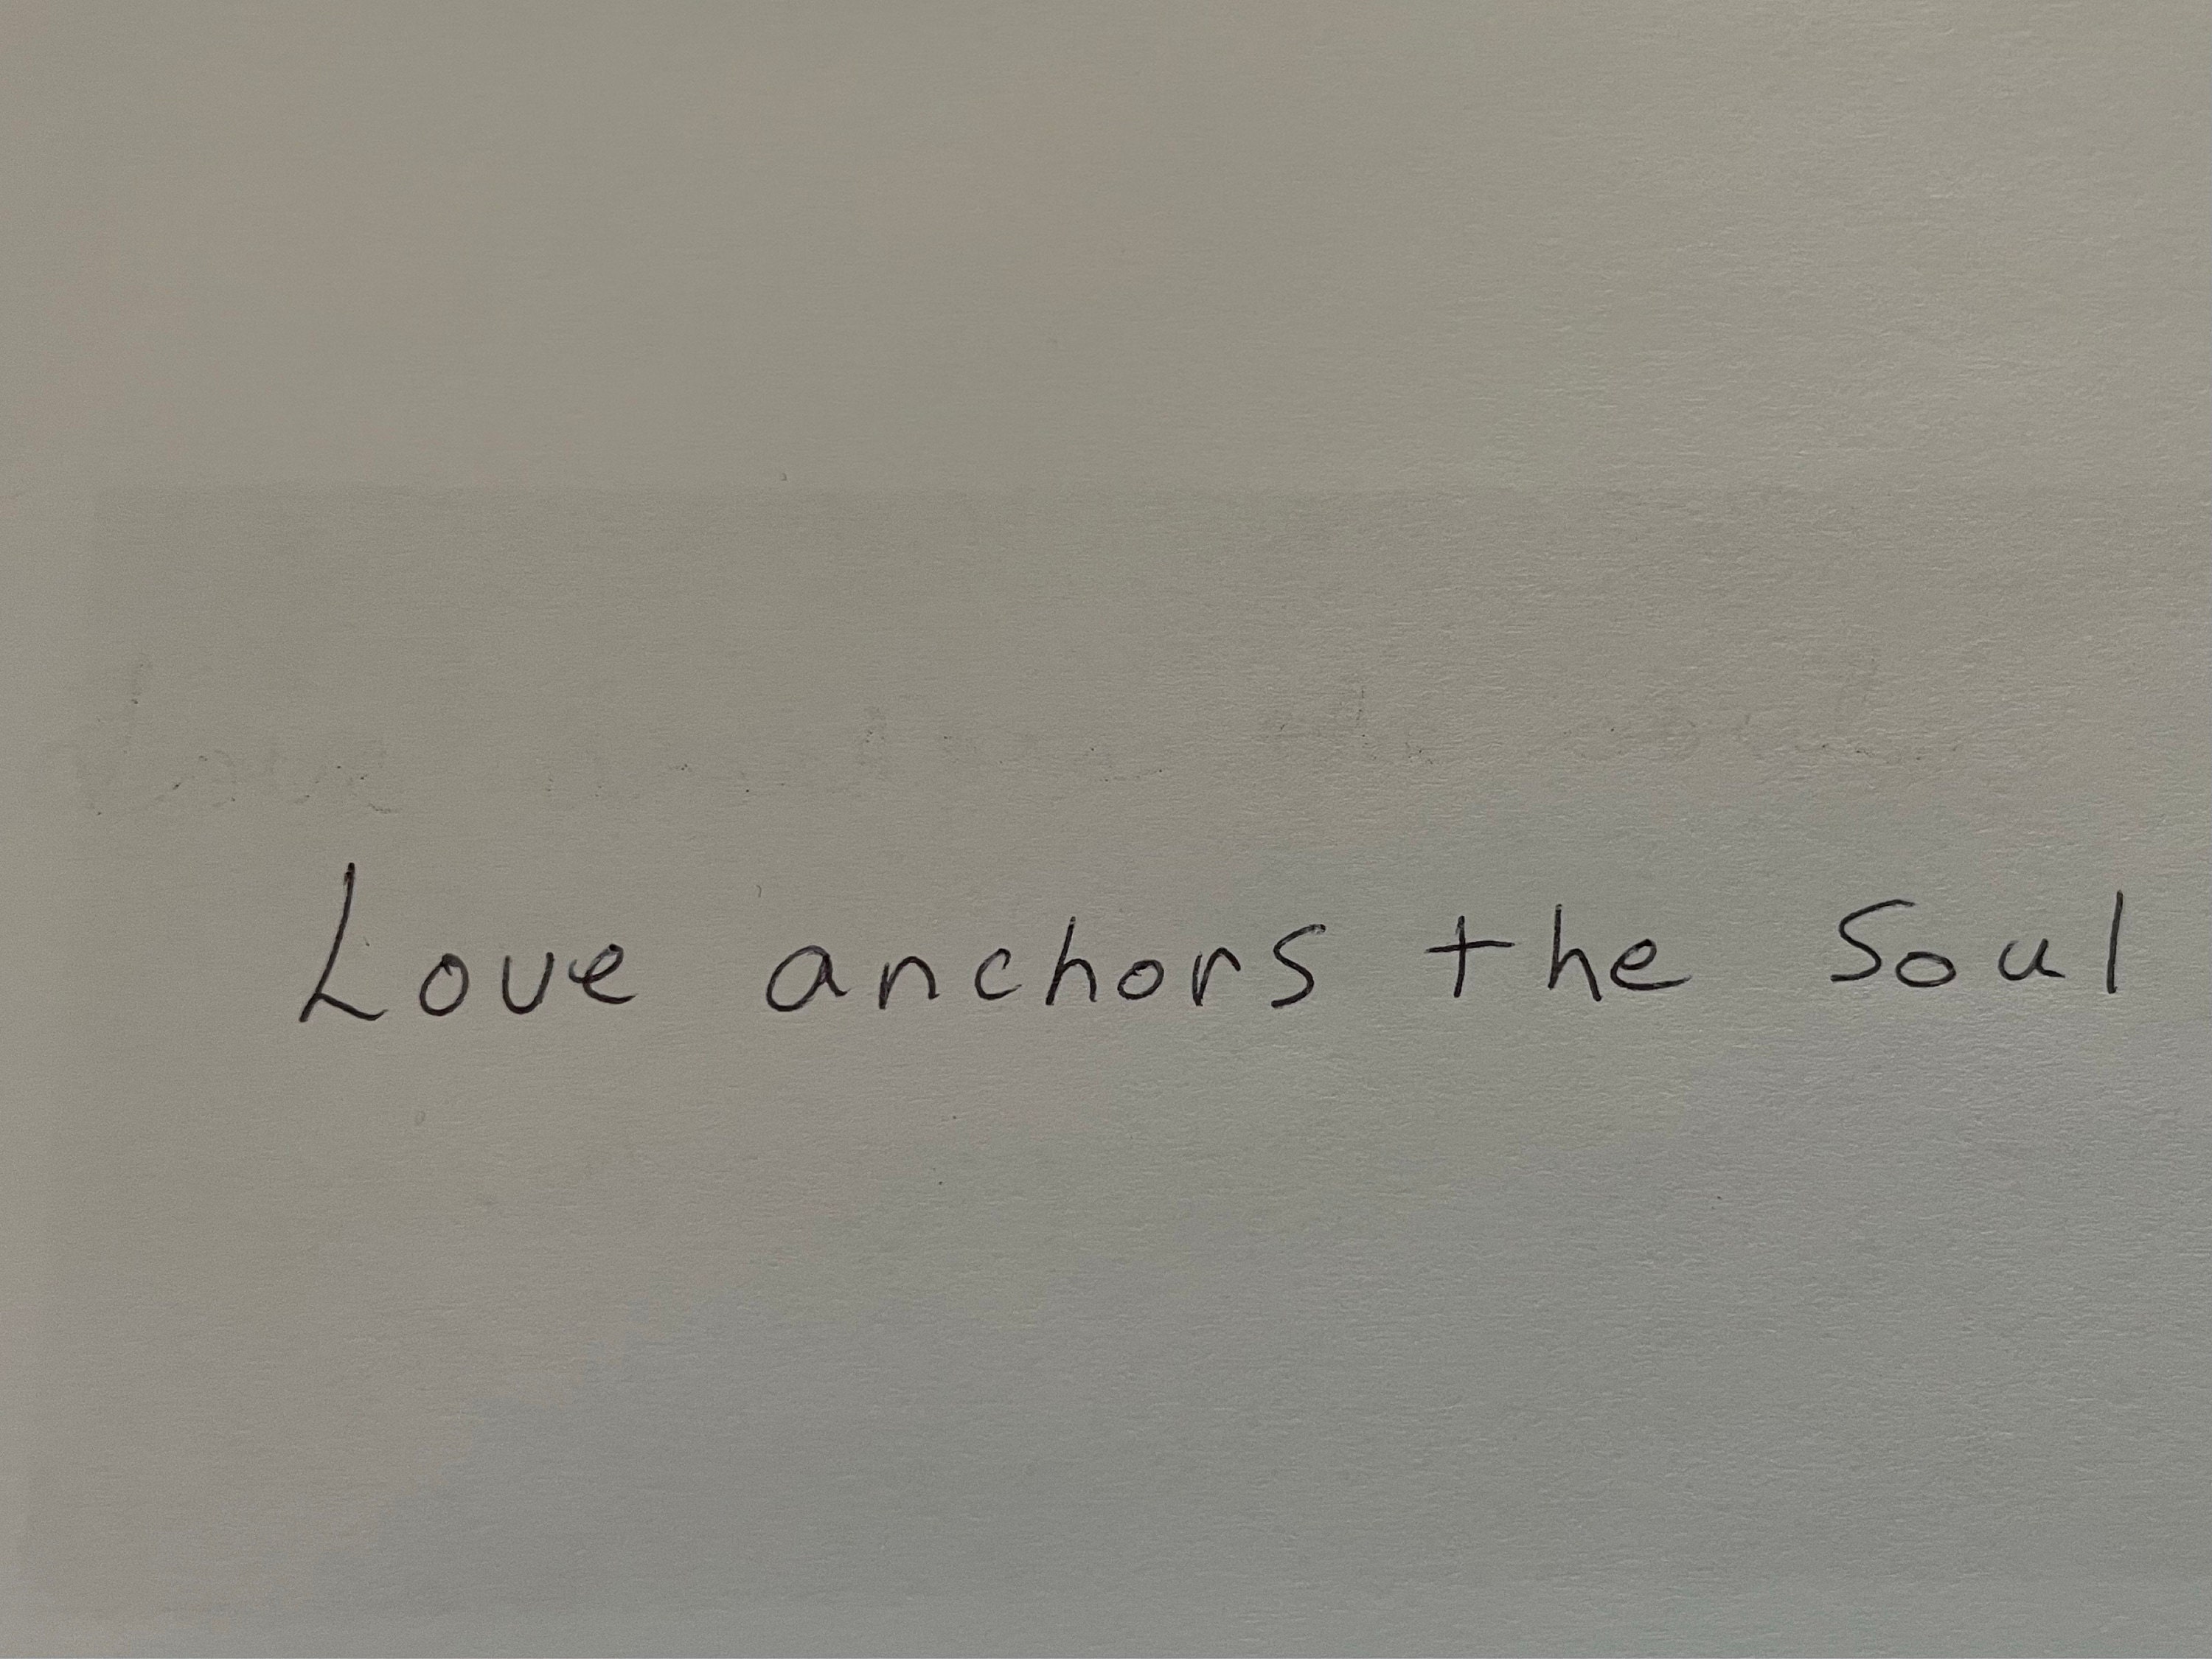 Love anchors the Soul